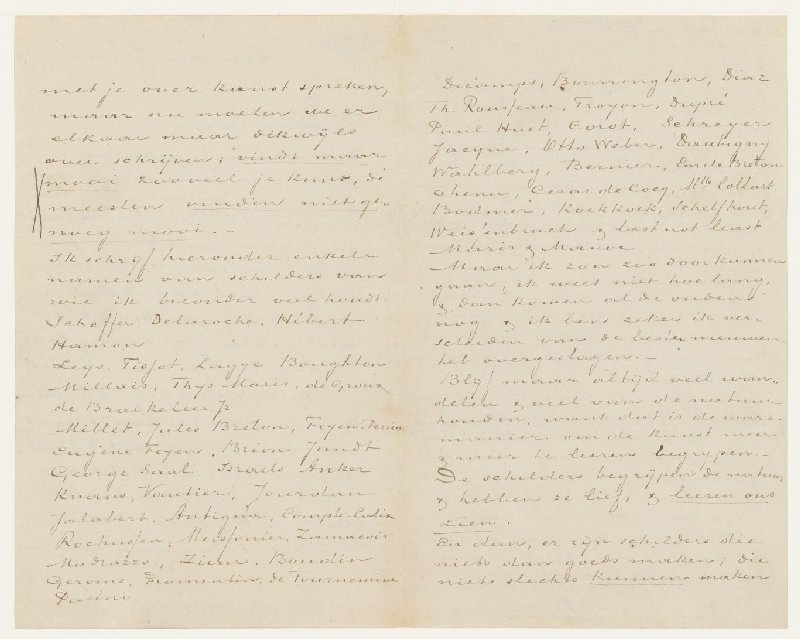 met je over kunst spreken,
maar nu moeten we er
elkaar maar dikwijls
over schrijven; vindt maar
mooi zooveel je kunt, de
meesten vinden niet ge-
noeg mooi. –
Ik schrijf hieronder enkele
namen van schilders van
wie ik bizonder veel houdt.
Scheffer, Delaroche, Hébert
Hamon
Leys, Tissot, Lagye Boughton
Millais, Thys Maris, de Groux
de Braekeleer Jr
Millet, Jules Breton, Feyen-Perrin
Eugène Feyen, Brion Jundt
George Saal. Israels Anker
Knaus, Vautier, Jourdan
Jalabert, Antigna, Compte-Calix
Rochussen, Meissonier, Zamacois
Madrazzo, Ziem, Boudin
Gerome, Fromentin, de Tournemine
Pasini
Decamps, Bonnington, Diaz
Th. Rousseau, Troyon, Dupré
Paul Huet, Corot, Schreyer
Jacque, Otto Weber, Daubigny
Wahlberg, Bernier, Emile Breton
Chenu, Cesar de Cocq, Mlle Collart
Bodmer, Koekkoek, Schelfhout,
Weissenbruch & last not least
Maris & Mauve
Maar ik zou zoo door kunnen
gaan, ik weet niet hoe lang,
& dan komen al de ouden
nog & ik ben zeker ik ver-
scheiden van de beste nieuwen
heb overgeslagen. –
Blijf maar altijd veel wan-
delen & veel van de natuur
houden, want dat is de ware
manier om de kunst meer
& meer te leeren begrijpen. –
De schilders begrijpen de natuur
& hebben ze lief, & leeren ons
zien.
En dan, er zijn schilders die
niets dan goeds maken, die
niets slechts kunnen maken